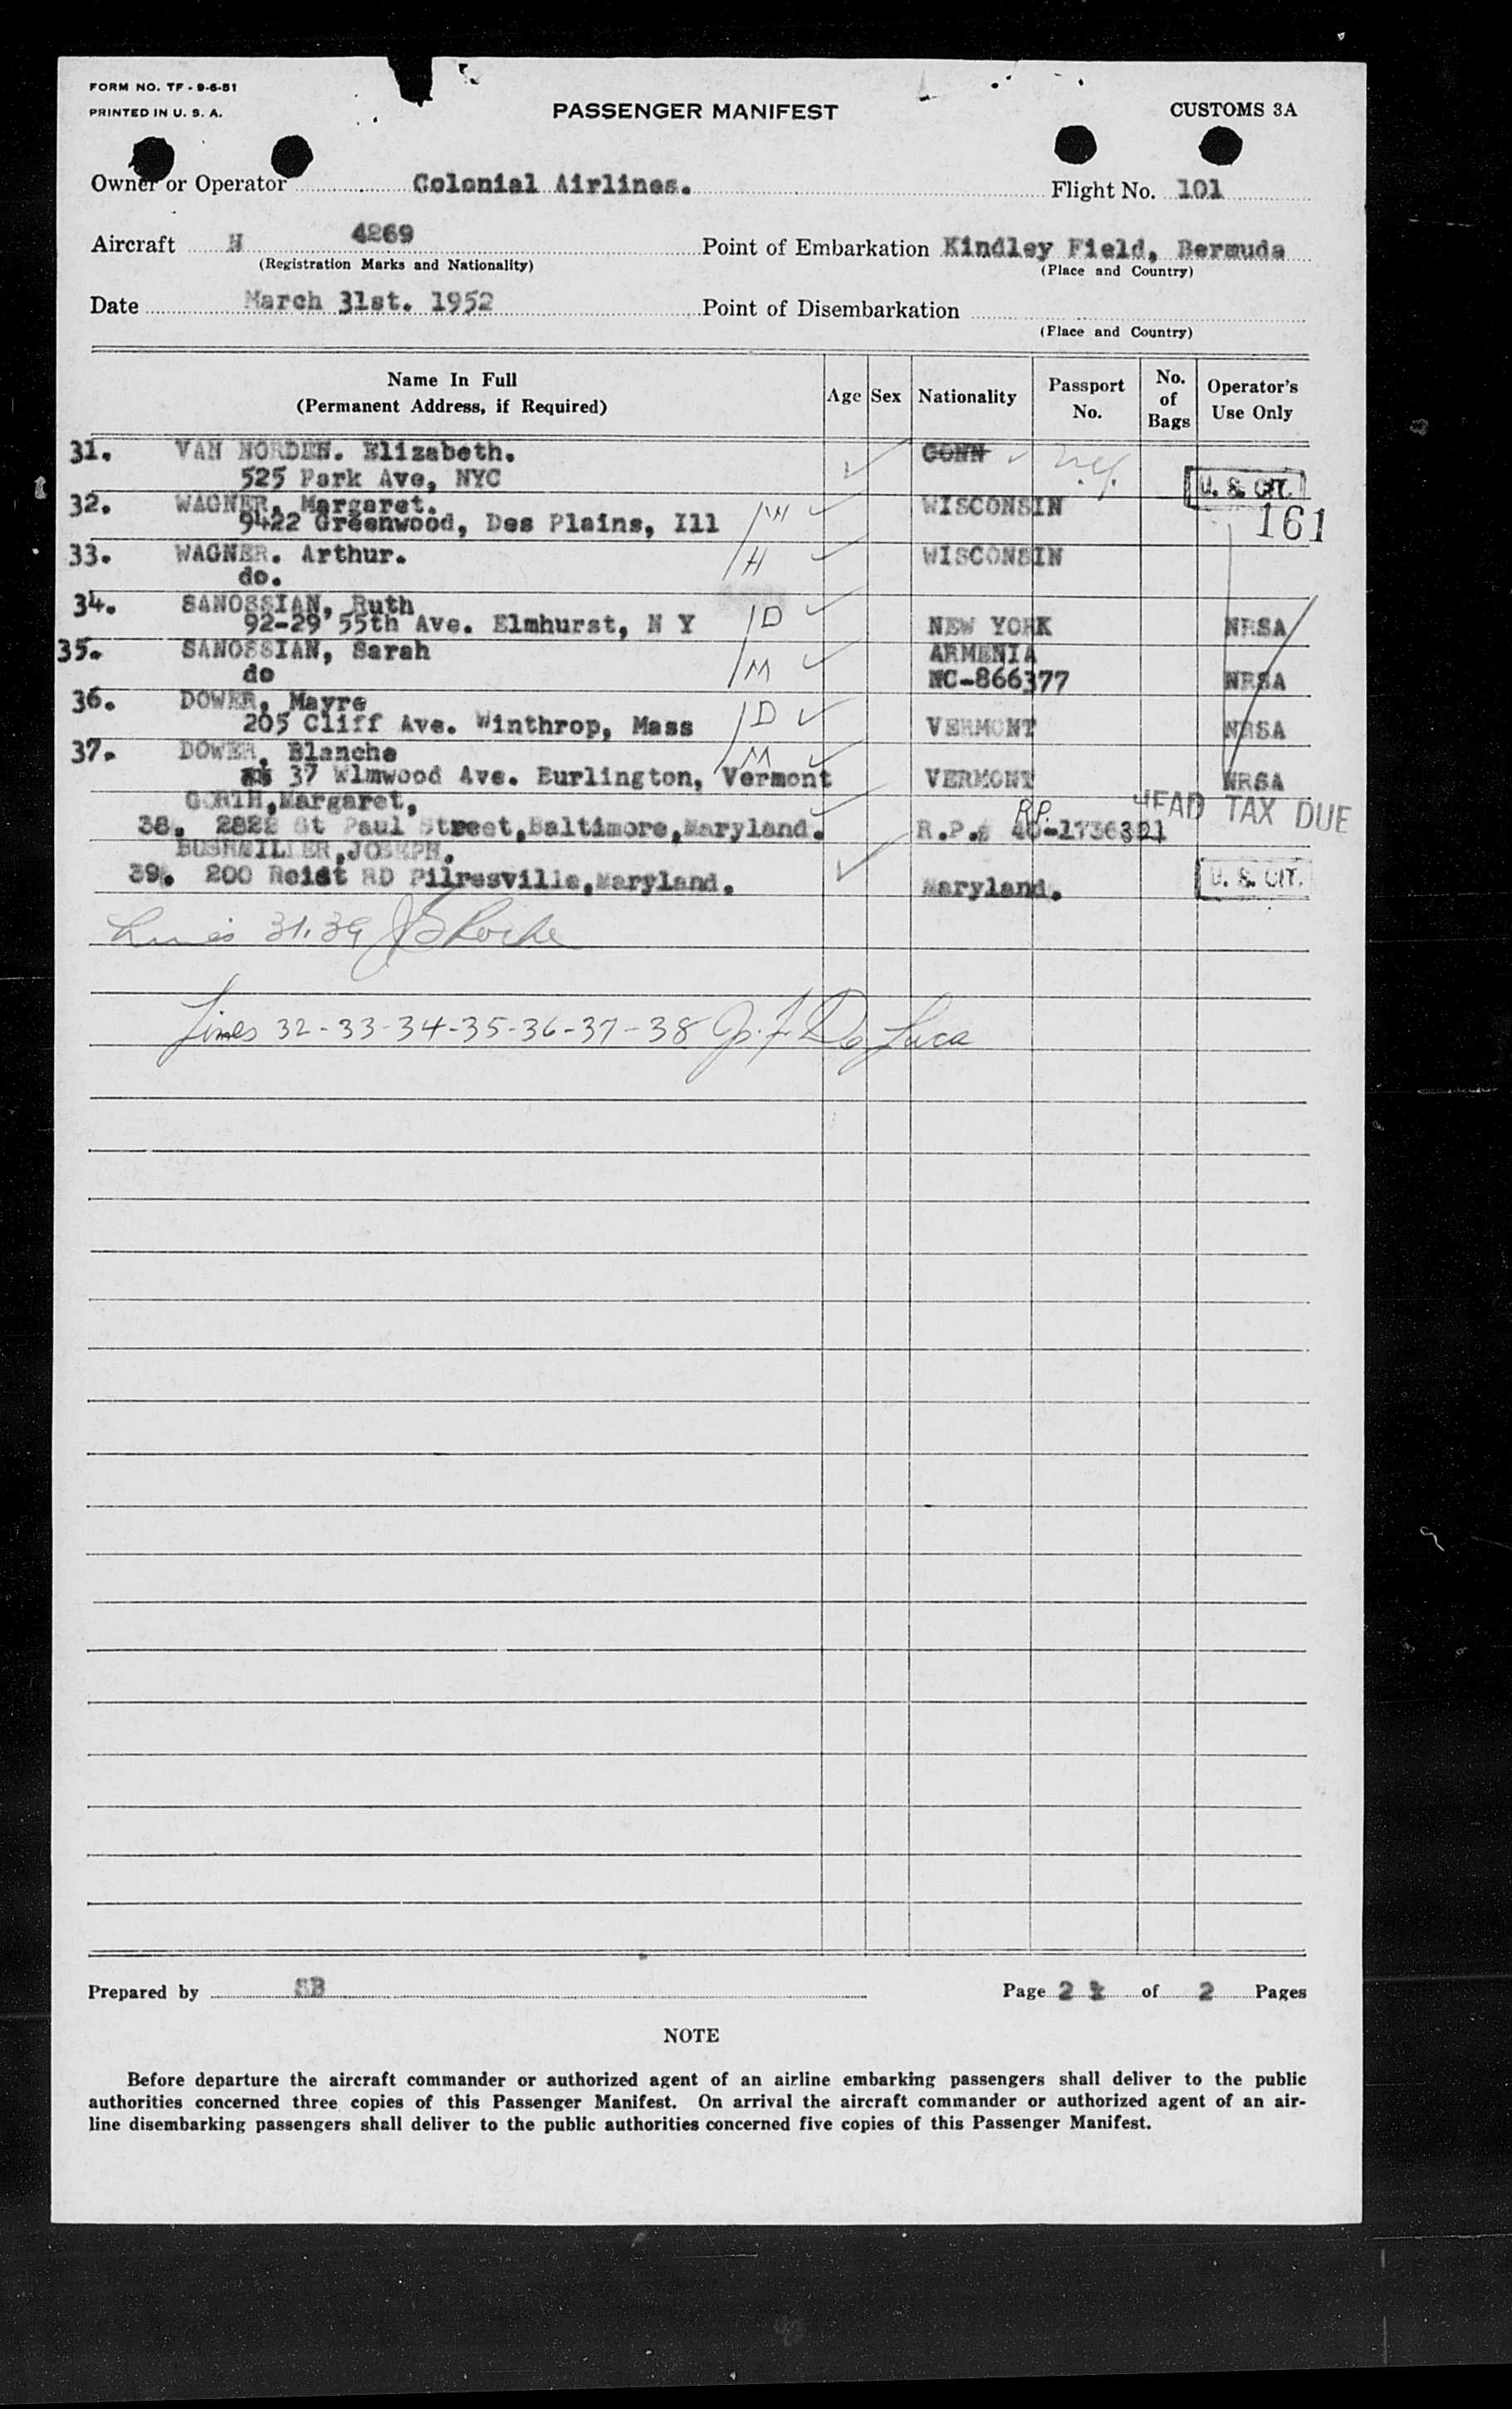 FORM NO. TF - 9-6-51
PRINTED IN U. S. A.
PASSENGER MANIFEST
CUSTOMS 3A
Owner or Operator Colonial Airlines.
Flight No. 101
Aircraft N 4269
(Registration Marks and Nationality)
Point of Embarkation Kindley Field, Bermuda
(Place and Country)
Date March 31st. 1952
Point of Disembarkation
(Place and Country)
Name In Full
(Permanent Address, if Required)
Age Sex Nationality
Passport
No.
No.
of
Bags
Operator's
Use Only
31. VAN NORDEN. Elizabeth. CONN N.Y.
525 Park Ave, NYC U. S. CIT.
32. WAGNER, Margaret. W WISCONSIN
9422 Greenwood, Des Plains, Ill 161
33. WAGNER. Arthur. H WISCONSIN
do.
34. SANOSSIAN, Ruth
92-29 55th Ave. Elmhurst, N Y D NEW YORK NRSA
35. SANOSSIAN, Sarah ARMENIA
do M NC-866377 NRSA
36. DOWER, Mayre
205 Cliff Ave. Winthrop, Mass D VERMONT NRSA
37. DOWER, Blanche M
37 Wlmwood Ave. Burlington, Vermont VERMONT NRSA
GORTH,Margaret, R.P. HEAD TAX DUE
38. 2822 St Paul Street,Baltimore,Maryland. R.P.# 40-1736321
BUSHMILLER,JOSEPH.
39. 200 Reist RD Pilresville,Maryland. Maryland. U. S. CIT.
Lines 31.39 Roche
Lines 32-33-34-35-36-37-38 J. F. De Luca
Prepared by SB
Page 2 of 2 Pages
NOTE
Before departure the aircraft commander or authorized agent of an airline embarking passengers shall deliver to the public
authorities concerned three copies of this Passenger Manifest. On arrival the aircraft commander or authorized agent of an air-
line disembarking passengers shall deliver to the public authorities concerned five copies of this Passenger Manifest.